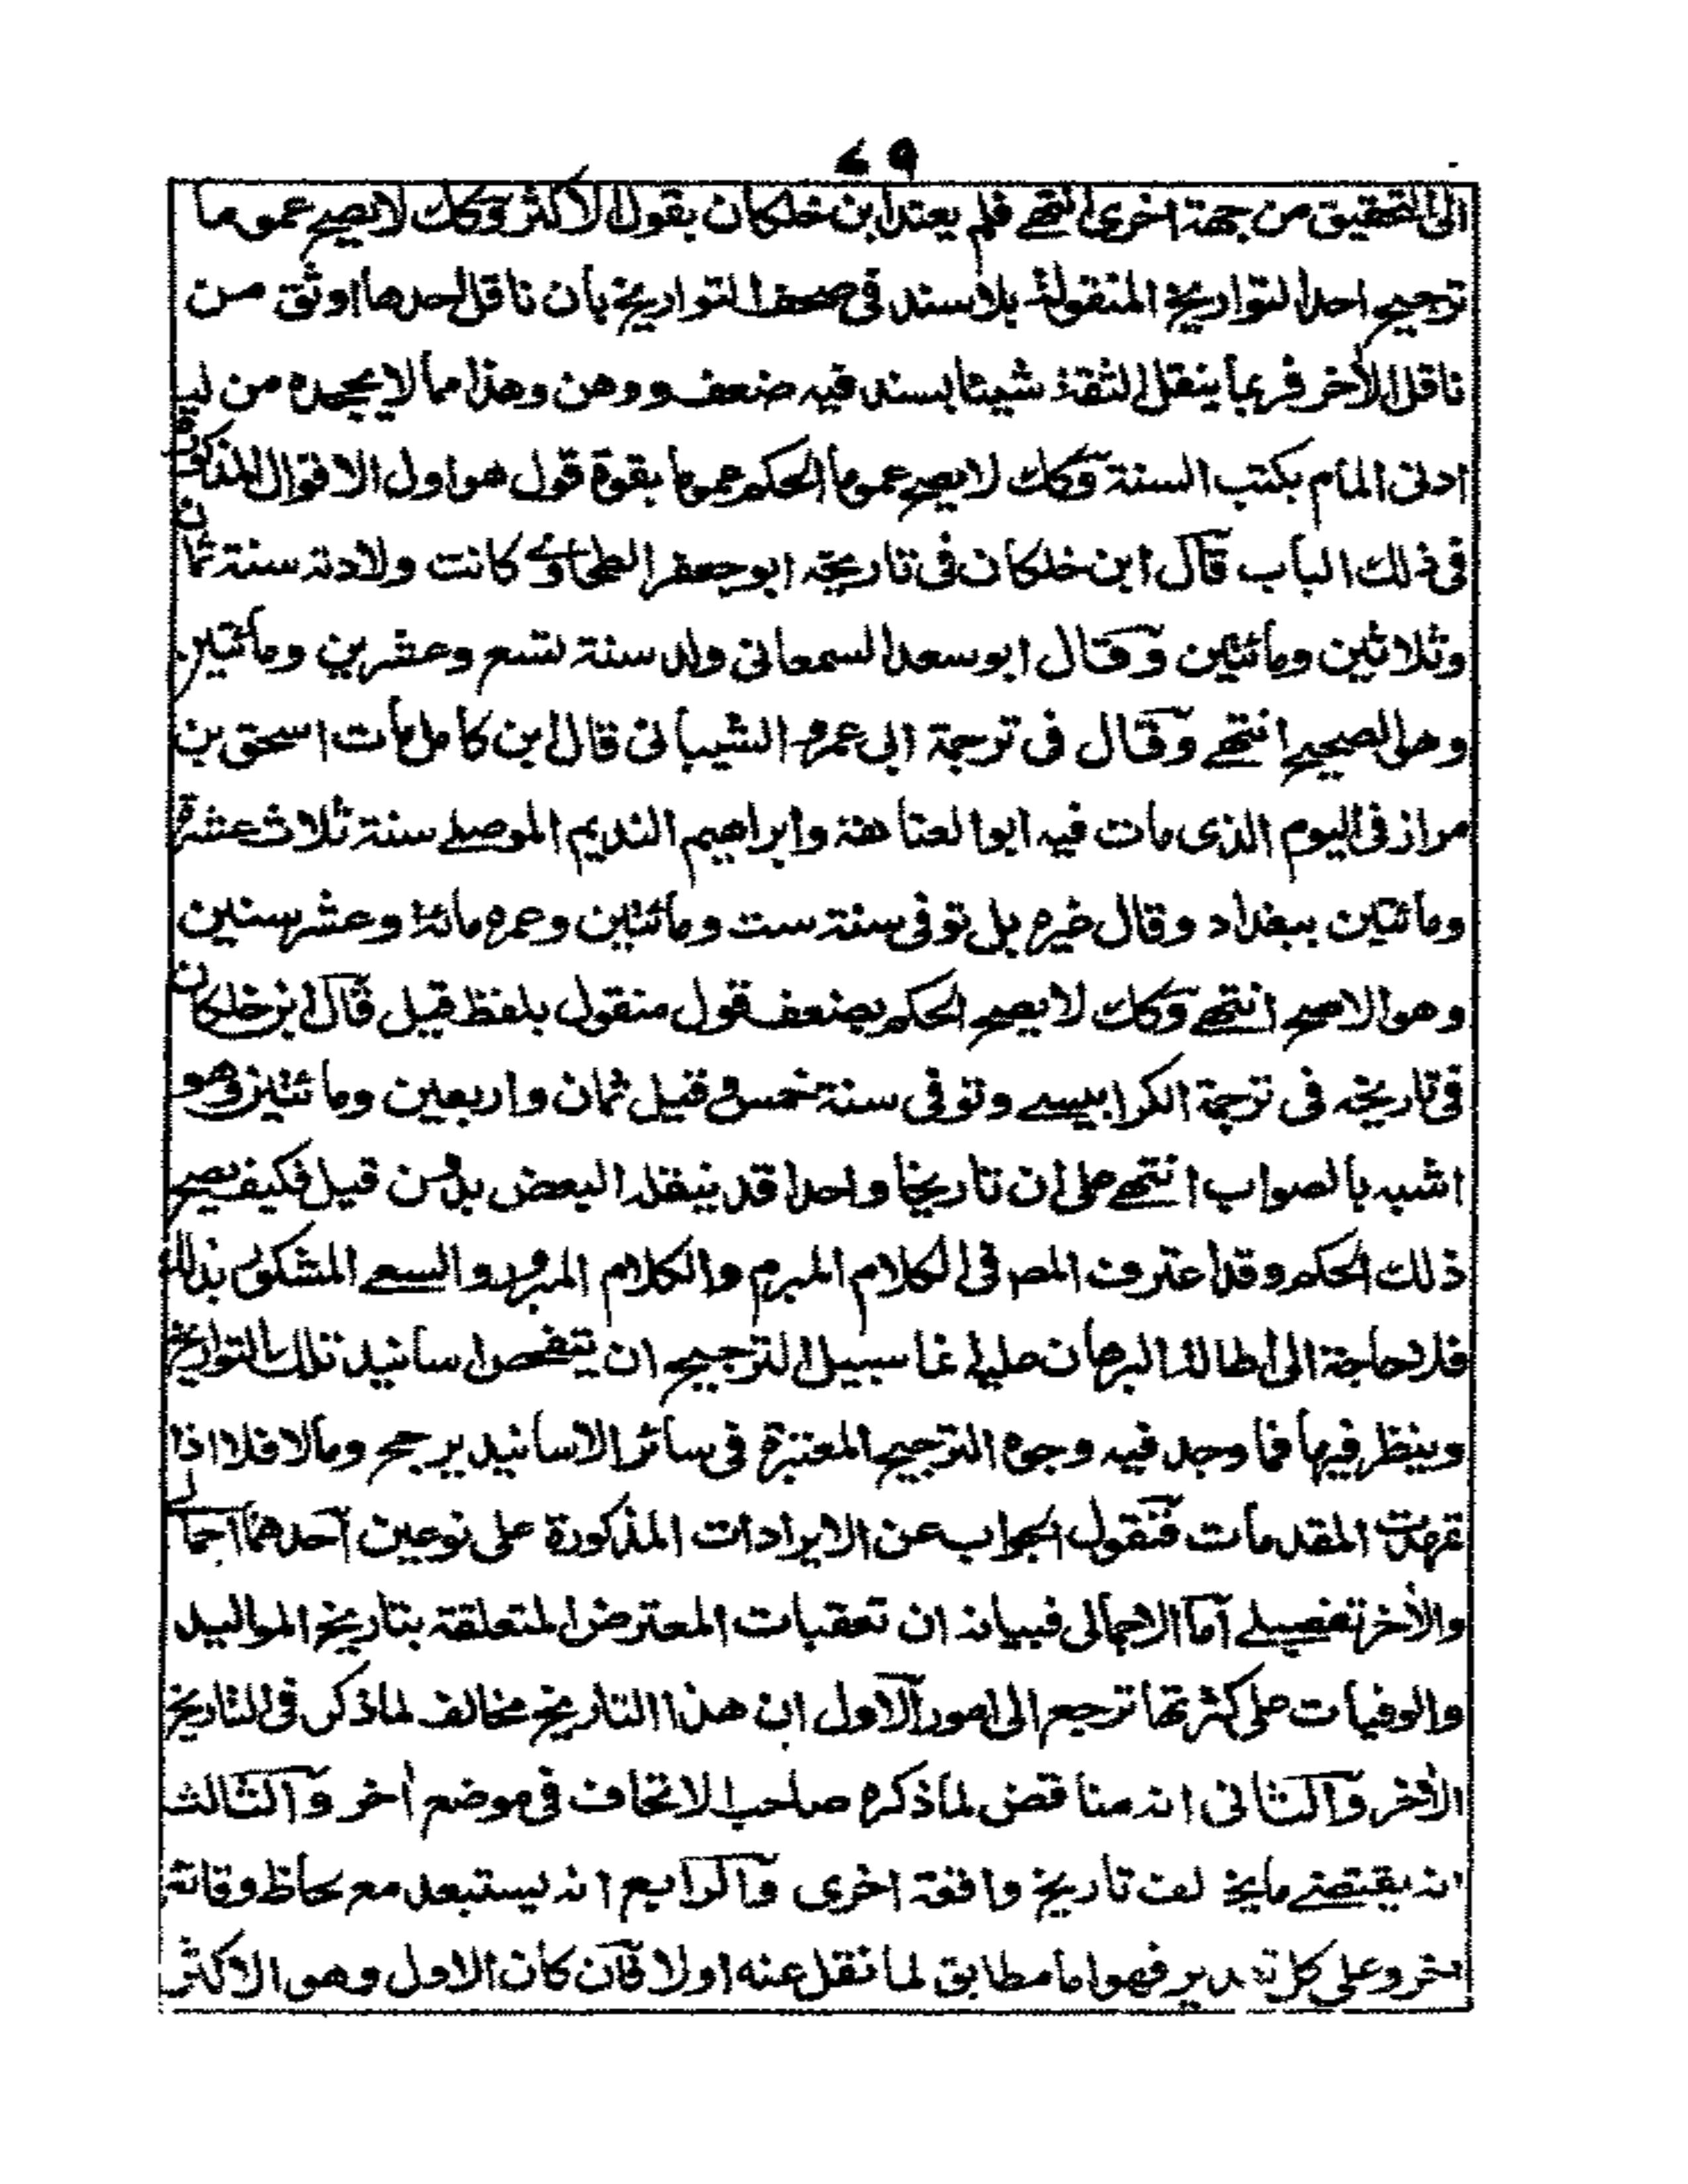 ٤٩
الى التحقيق من جهة اخرى انتهى فلم يعتد ابن خلكان بقول الاكثر وكك لا يصح عموما
ترجيح احد التواريخ المنقولة بلا سند فى صحف التواريخ بان ناقل احدها اوثق من
ناقل الأخر فربما ينقل الثقة شيئا بسند فيه ضعف ووهن وهذا مما لا يجحده من له
ادنى المام بكتب السنة وكك لا يصح عموما الحكم عموما بقوة قول هو اول الاقوال المذكورة
فى ذلك الباب قال ابن خلكان فى تاريخه ابو جعفر الطحاوى كانت ولادته سنة ثمان
وثلاثين ومائتين وقال ابو سعد السمعانى ولد سنة تسع وعشرين ومائتين
وهو الصحيح انتهى وقال فى ترجمة ابى عمرو الشيبانى قال ابن كامل مات اسحق بن
مرار فى اليوم الذى مات فيه ابو العتاهية وابراهيم النديم الموصلى سنة ثلاث عشرة
ومائتين ببغداد وقال غيره بل توفى سنة ست ومائتين وعمره مائة وعشر سنين
وهو الاصح انتهى وكك لا يصح الحكم بضعف قول منقول بلفظ قيل قال ابن خلكان
فى تاريخه فى ترجمة الكرابيسى وتوفى سنة خمس وقيل ثمان واربعين ومائتين وهو
اشبه بالصواب انتهى على ان تاريخا واحدا قد ينقله البعض بدون قيل فكيف يصح
ذلك الحكم وقد اعترف المص فى الكلام المبرم والكلام المبرور والسعى المشكور بذلك
فلا حاجة الى اطالة البرهان عليه انما سبيل الترجيح ان يتفحص اسانيد تلك التواريخ
وينظر فيها فما وجد فيه وجوه الترجيح المعتبرة فى سائر الاسانيد يرجح ومالا فلا اذا
تمهدت المقدمات فنقول الجواب عن الايرادات المذكورة على نوعين احدهما اجمالى
والأخر تفصيلى اما الاجمالى فبيانه ان تعقبات المعترض المتعلقة بتاريخ المواليد
والوفيات على كثرتها ترجع الى امور الاول ان هذا التاريخ مخالف لما ذكر فى التاريخ
الأخر والثانى انه مناقض لما ذكره صاحب الاتحاف فى موضع أخر والثالث
انه يقتضى ما يخالف تاريخ وافقة اخرى والرابع انه يستبعد مع لحاظ وفاته
أخر وعلى كل تقدير فهو اما مطابق لما نقل عنه اولا فان كان الاول وهو الاكثر